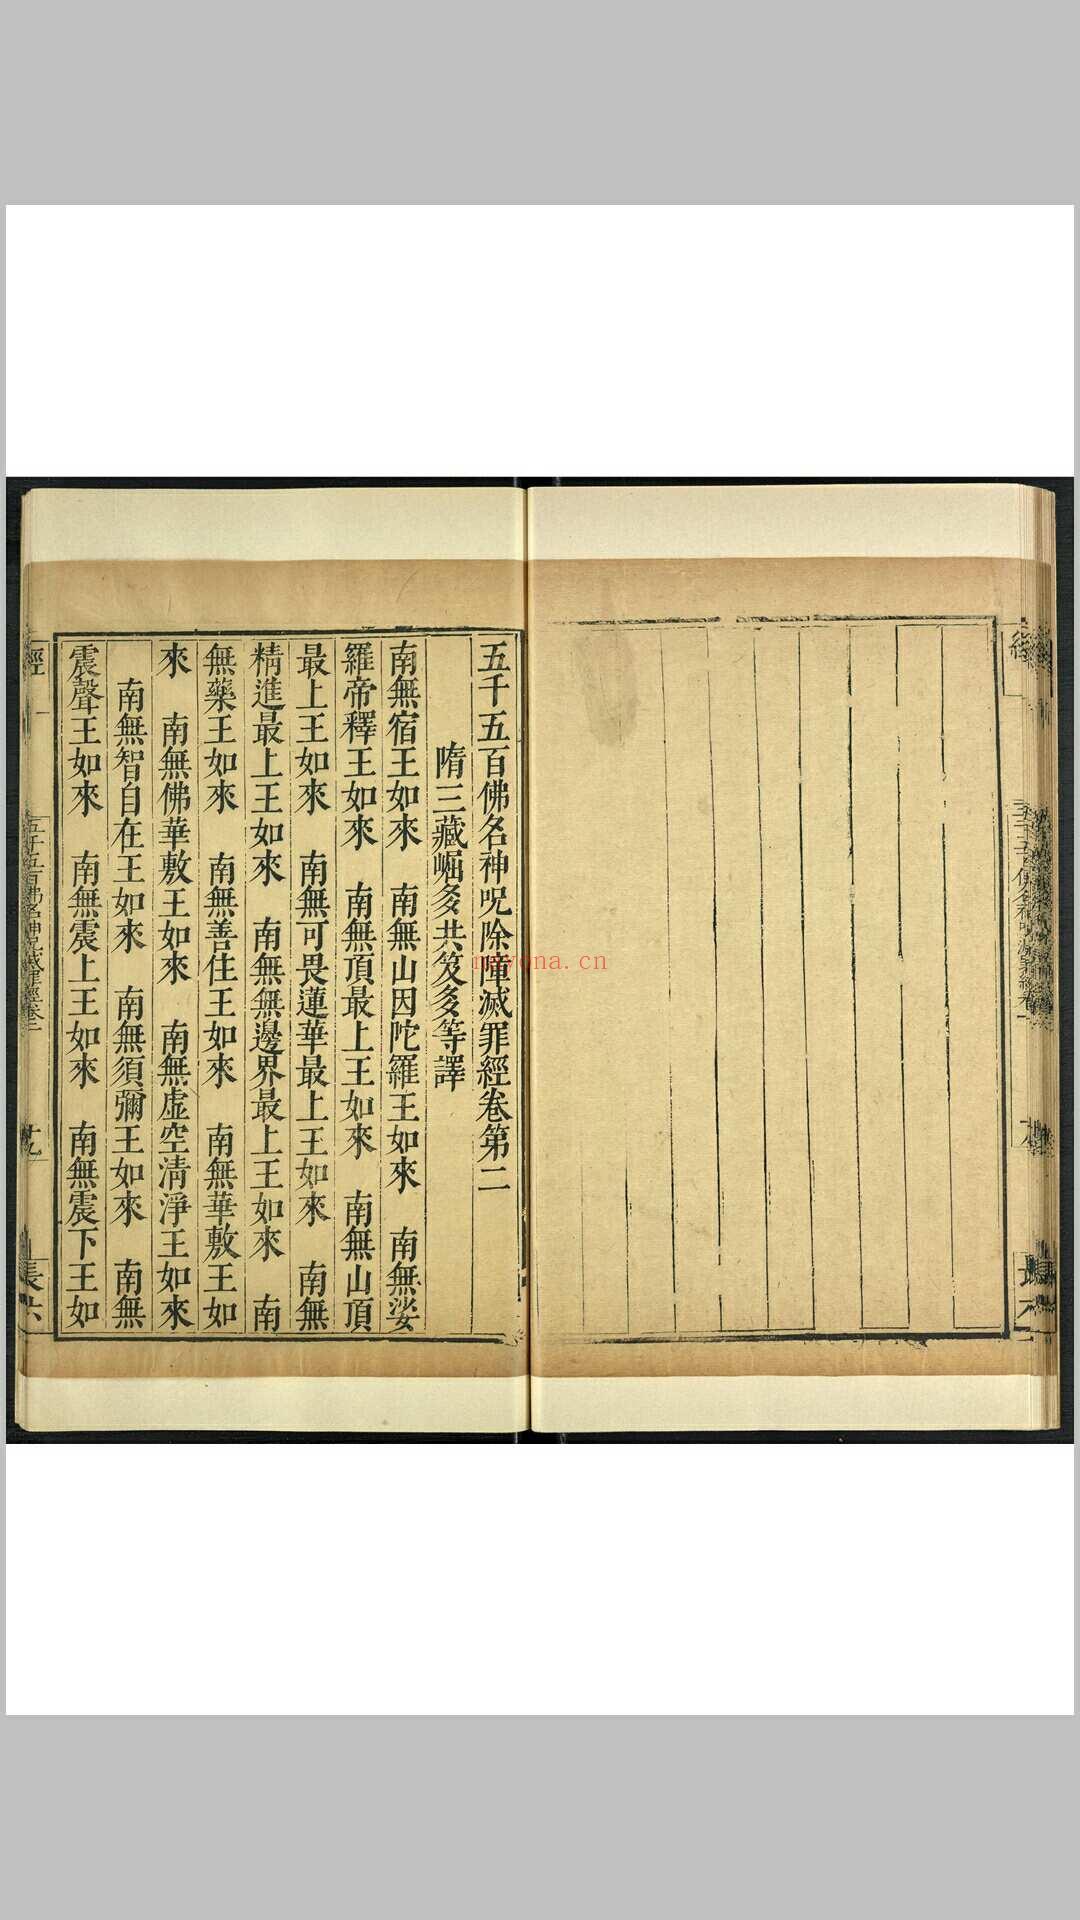 五千五百佛名神呪除障滅罪經卷第二
隋三藏崛多共笈多等譯
南無宿王如來　南無山因陀羅王如來　南無娑
羅帝釋王如來　南無頂最上王如來　南無山頂
最上王如來　南無可畏蓮華最上王如來　南無
精進最上王如來　南無無邊界最上王如來　南
無藥王如來　南無善住王如來　南無華敷王如
來　南無佛華敷王如來　南無虛空清淨王如來
南無智自在王如來　南無須彌王如來　南無
震聲王如來　南無震上王如來　南無震下王如
經
五千五百佛名神呪滅罪經卷二
十九
長六
nayona.cn